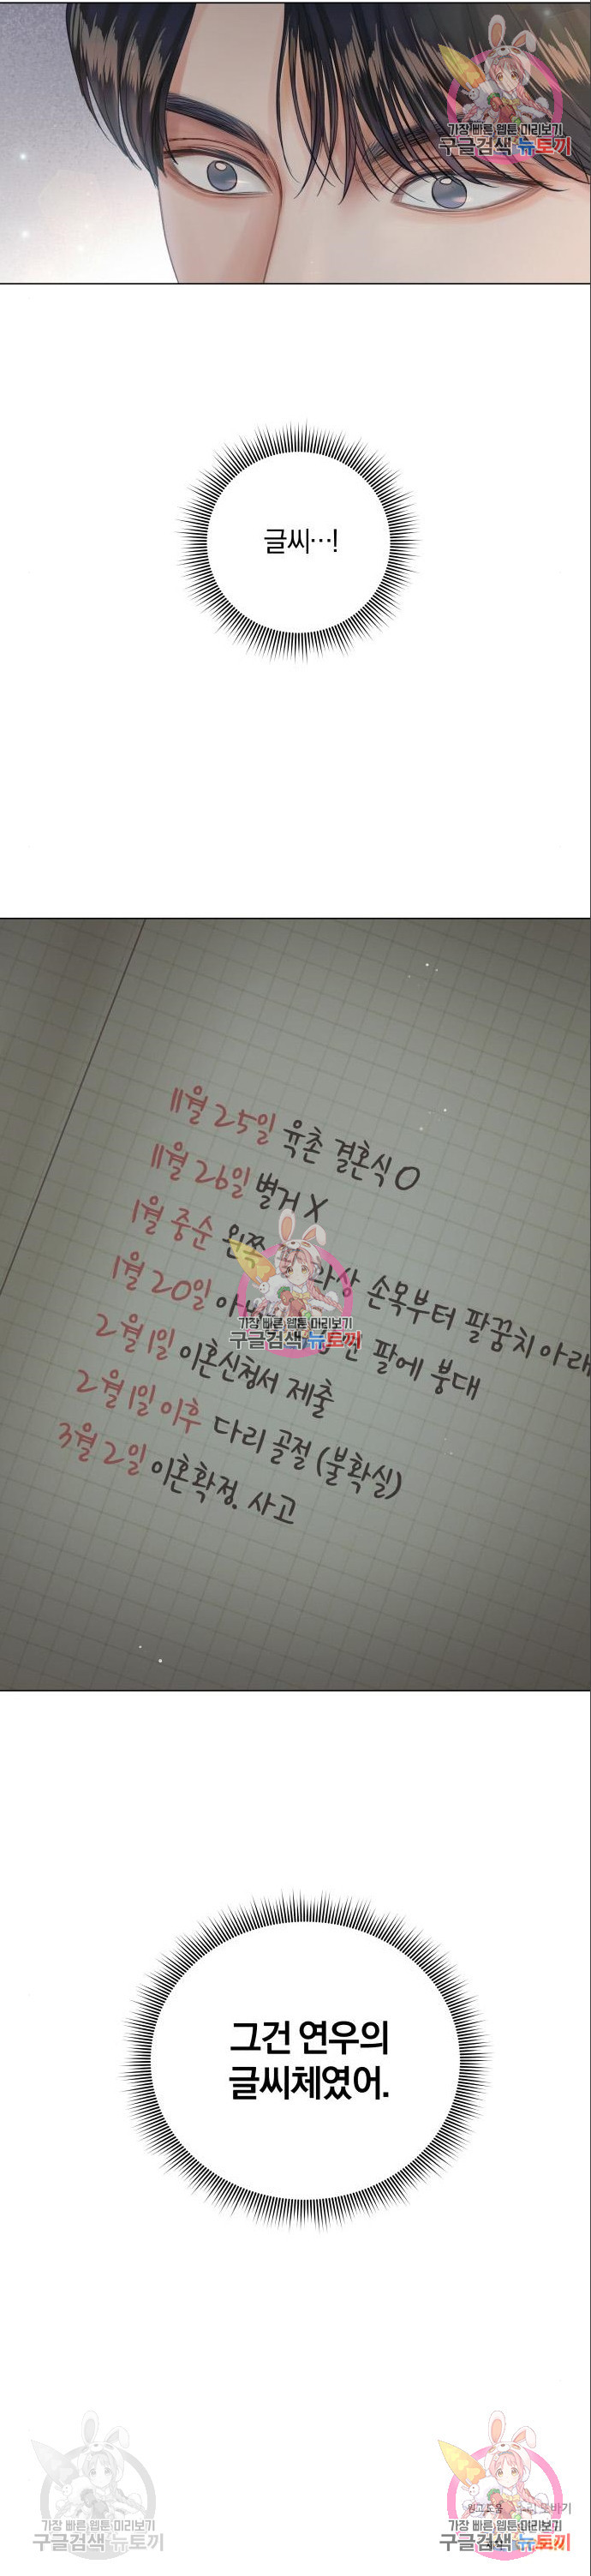 가장 빠른 웹툰 미리보기
구글검색 뉴토끼
글씨…!
11월 25일 육촌 결혼식 O
11월 26일 별거 X
1월 중순 왼쪽 화상 손목부터 팔꿈치 아래
1월 20일 팔에 붕대
가장 빠른 웹툰 미리보기
구글검색 뉴토끼
2월 1일 이혼신청서 제출
2월 1일 이후 다리 골절 (불확실)
3월 2일 이혼확정. 사고
그건 연우의
글씨체였어.
원고도움
가장 빠른 웹툰 미리보기
구글검색 뉴토끼
가장 빠른 웹툰 미리보기
구글검색 뉴토끼